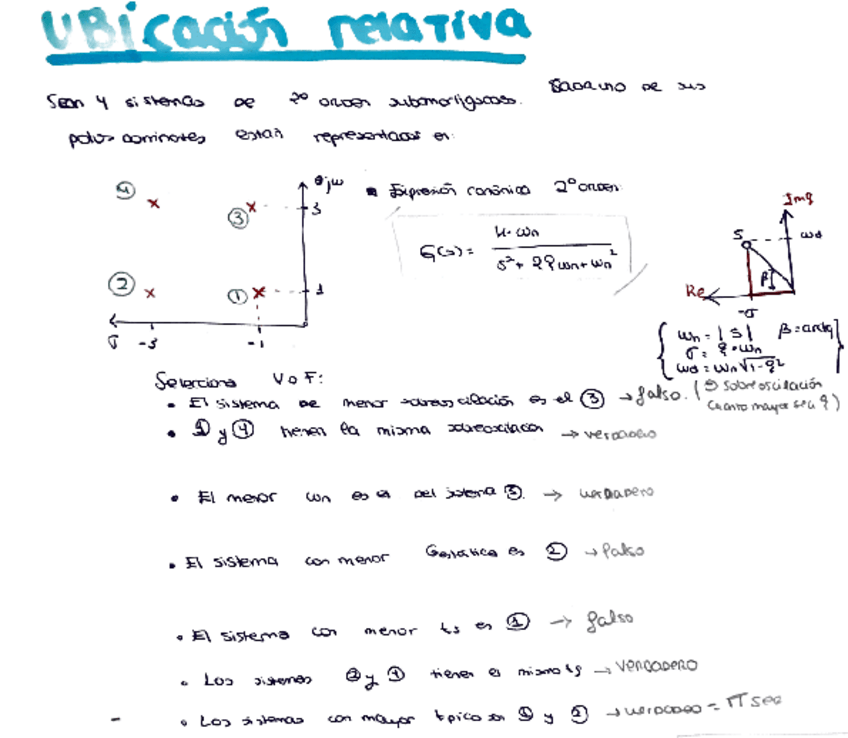 UBicación relativa
Sean 4 sistemas de 2º orden subamortiguados. Cada uno de sus
polos dominantes están representados en:
④ ③ jω 3
② ① 1
σ -3 -1
Expresión canónica 2º orden
G(s) = K·ωn / s² + 2ζωn + ωn²
Img
S ωd
β
Re -σ
ωn = |S| β = arctg
σ = ζ·ωn
ωd = ωn√1-ζ²
Selecciona V o F:
• El sistema de menor sobreoscilación es el ③ → falso. (⊃ sobreoscilación
cuanto mayor sea ζ)
• ① y ④ tienen la misma sobreoscilación → verdadero
• El menor ωn es el del sistema → verdadero
• El sistema con menor Gestática es ② → falso
• El sistema con menor ts es ① → falso
• Los sistemas ② y ④ tienen el mismo ts → VERDADERO
- • Los sistemas con mayor tpico son ① y ② → verdadero = π seg